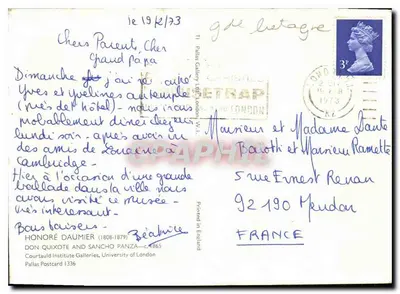 le 19/2/73
gde bretagne
Chers Parents, Cher
Grand Papa
Dimanche j'ai rencontré
Yves et Yvelines au temple
(près de l'hôtel) - nous irons
probablement diner chez eux
lundi soir - après avoir vu
des amis de à
Cambridge -
Hier à l'occasion d'une grande
ballade dans la ville nous
avons visité ce musée -
très interessant -
Bons baisers -
Béatrice
HONORÉ DAUMIER (1808-1879)
DON QUIXOTE AND SANCHO PANZA—c.1865
Courtauld Institute Galleries, University of London
Pallas Postcard 1336
Pallas Gallery
W.1.
Printed in England
SETRAP
LONDON
1973
3P
Monsieur et Madame Dante
Baiotti et Monsieur Ramette
5 rue Ernest Renan
92190 Meudon
FRANCE